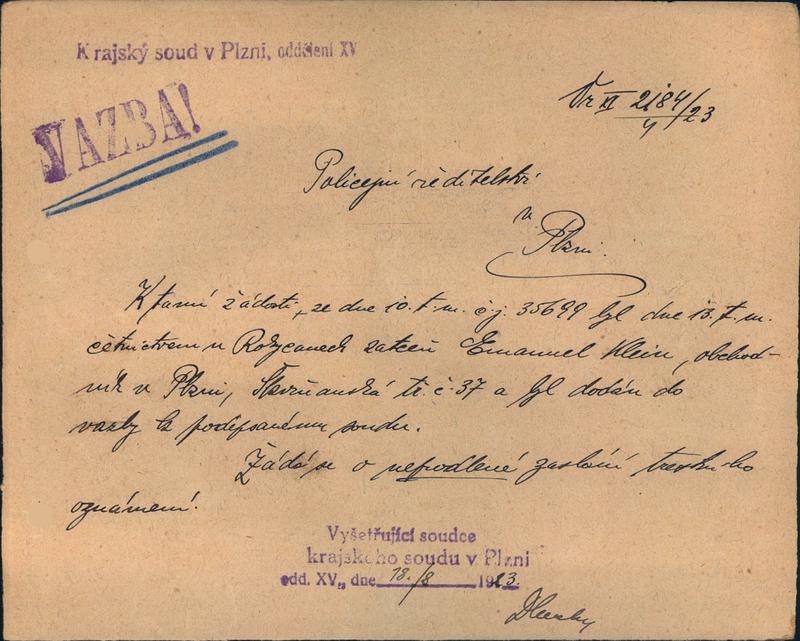 Krajský soud v Plzni, oddělení XV
VAZBA!
2184/23
4
Policejní ředitelství
v
Plzni.
K tamní žádosti, ze dne 10. t. m. čj. 35699 byl dne 13. t. m.
četnictvem v Rokycanech zatčen Emanuel Klein, obchod-
ník v Plzni, Skvrňanská tř. č. 37 a byl dodán do
vazby k podepsanému soudu.
Žádá se o neprodlené zaslání trestního
oznámení.
Vyšetřující soudce
krajského soudu v Plzni
odd. XV., dne 18./8 1923.